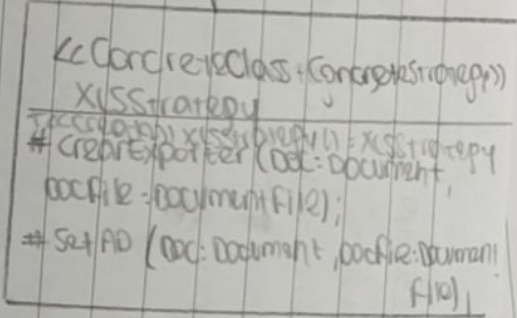 <<ConcreteClass, ConcreteStrategy>>
XLSStrategy
XLSStrategy() = XLSStrategy
# CrearExporter (Doc: Document,
DocFile: DocumentFile);
# SetAD (Doc: Document, DocFile: Document
File),